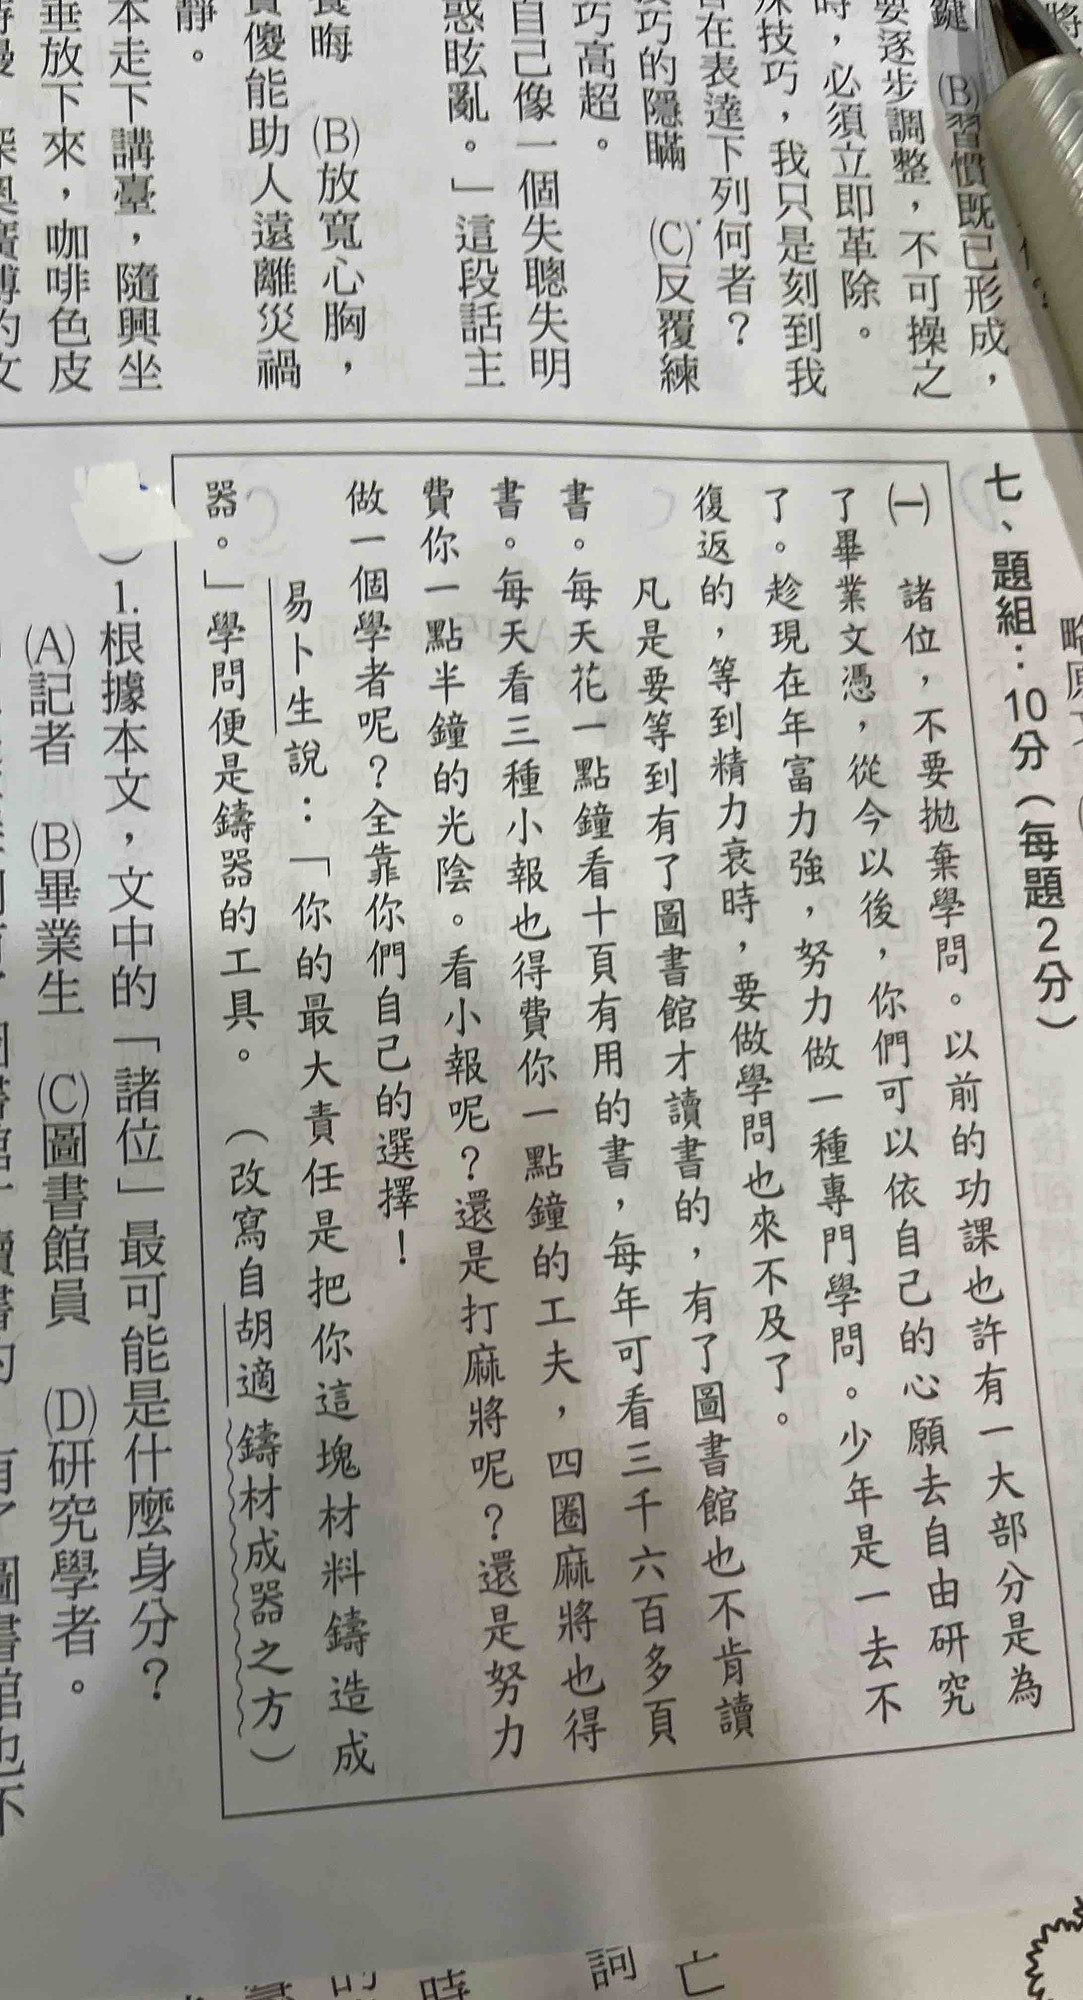 將
鍵　(B)習慣既已形成，
要逐步調整，不可操之
時，必須立即革除。
技巧，我只是刻到我
在表達下列何者？
技巧的隱瞞　(C)反覆練
巧高超。
自己像一個失聰失明
惑眩亂。」這段話主
晦　(B)放寬心胸，
傻能助人遠離災禍
靜。
本走下講臺，隨興坐
垂放下來，咖啡色皮
七、題組：10分（每題2分）
㈠　諸位，不要拋棄學問。以前的功課也許有一大部分是為
了畢業文憑，從今以後，你們可以依自己的心願去自由研究
了。趁現在年富力強，努力做一種專門學問。少年是一去不
復返的，等到精力衰時，要做學問也來不及了。
凡是要等到有了圖書館才讀書的，有了圖書館也不肯讀
書。每天花一點鐘看十頁有用的書，每年可看三千六百多頁
書。每天看三種小報也得費你一點鐘的工夫，四圈麻將也得
費你一點半鐘的光陰。看小報呢？還是打麻將呢？還是努力
做一個學者呢？全靠你們自己的選擇！
易卜生說：「你的最大責任是把你這塊材料鑄造成
器。」學問便是鑄器的工具。（改寫自胡適鑄材成器之方）
）1.根據本文，文中的「諸位」最可能是什麼身分？
(A)記者　(B)畢業生　(C)圖書館員　(D)研究學者。
亡
詞
時